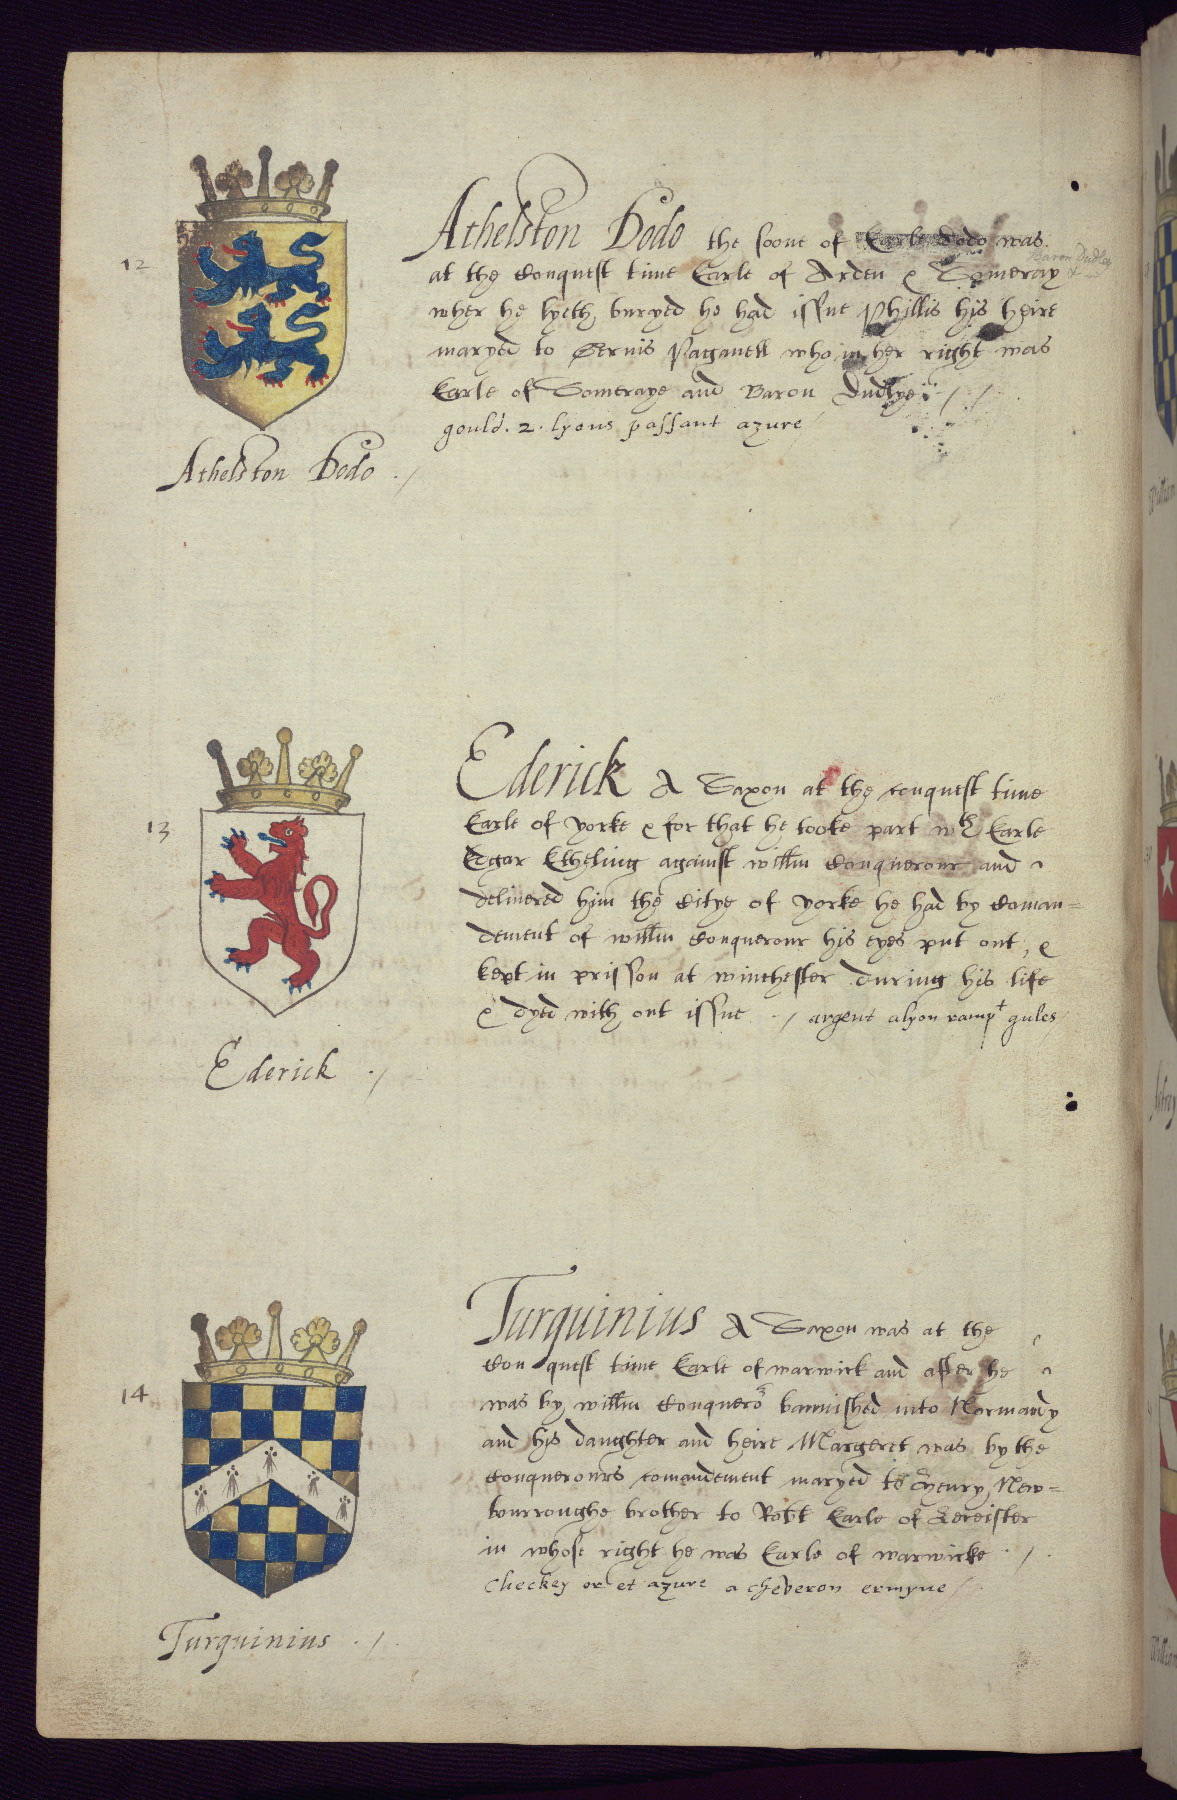 12
Athelston Dodo the soone of Earle Dodo was
Baron Dudley
at the Conquest time Earle of Arden & Someray
wher he lyeth buryed he had issue Phillis his heire
maryed to Gervis Paganell who in her right was
Earle of Someraye and Baron Dudlye
gould. 2. lyons passant azure
Athelston Dodo
13
Ederick A Saxon at the conquest time
Earle of Yorke & for that he tooke part wth Earle
Edgar Etheling against willm Conquerour and
delivered him the Citye of Yorke he had by Coman=
dement of willm Conquerour his eyes put out, &
kept in prisson at winchester during his life
& dyed with out issue . / argent a lyon rampt gules
Ederick . /
14
Turquinius A Saxon was at the
Con quest time Earle of warwick and after he
was by willm Conqueror bannished into Normandy
and his daughter and heire Margeret was by the
Conquerours comandement maryed to Henry New=
bourroughe brother to Robt Earle of Leceister
in whose right he was Earle of warwicke . /
Checkey or et azure a cheveron ermyne /
Turquinius . / .